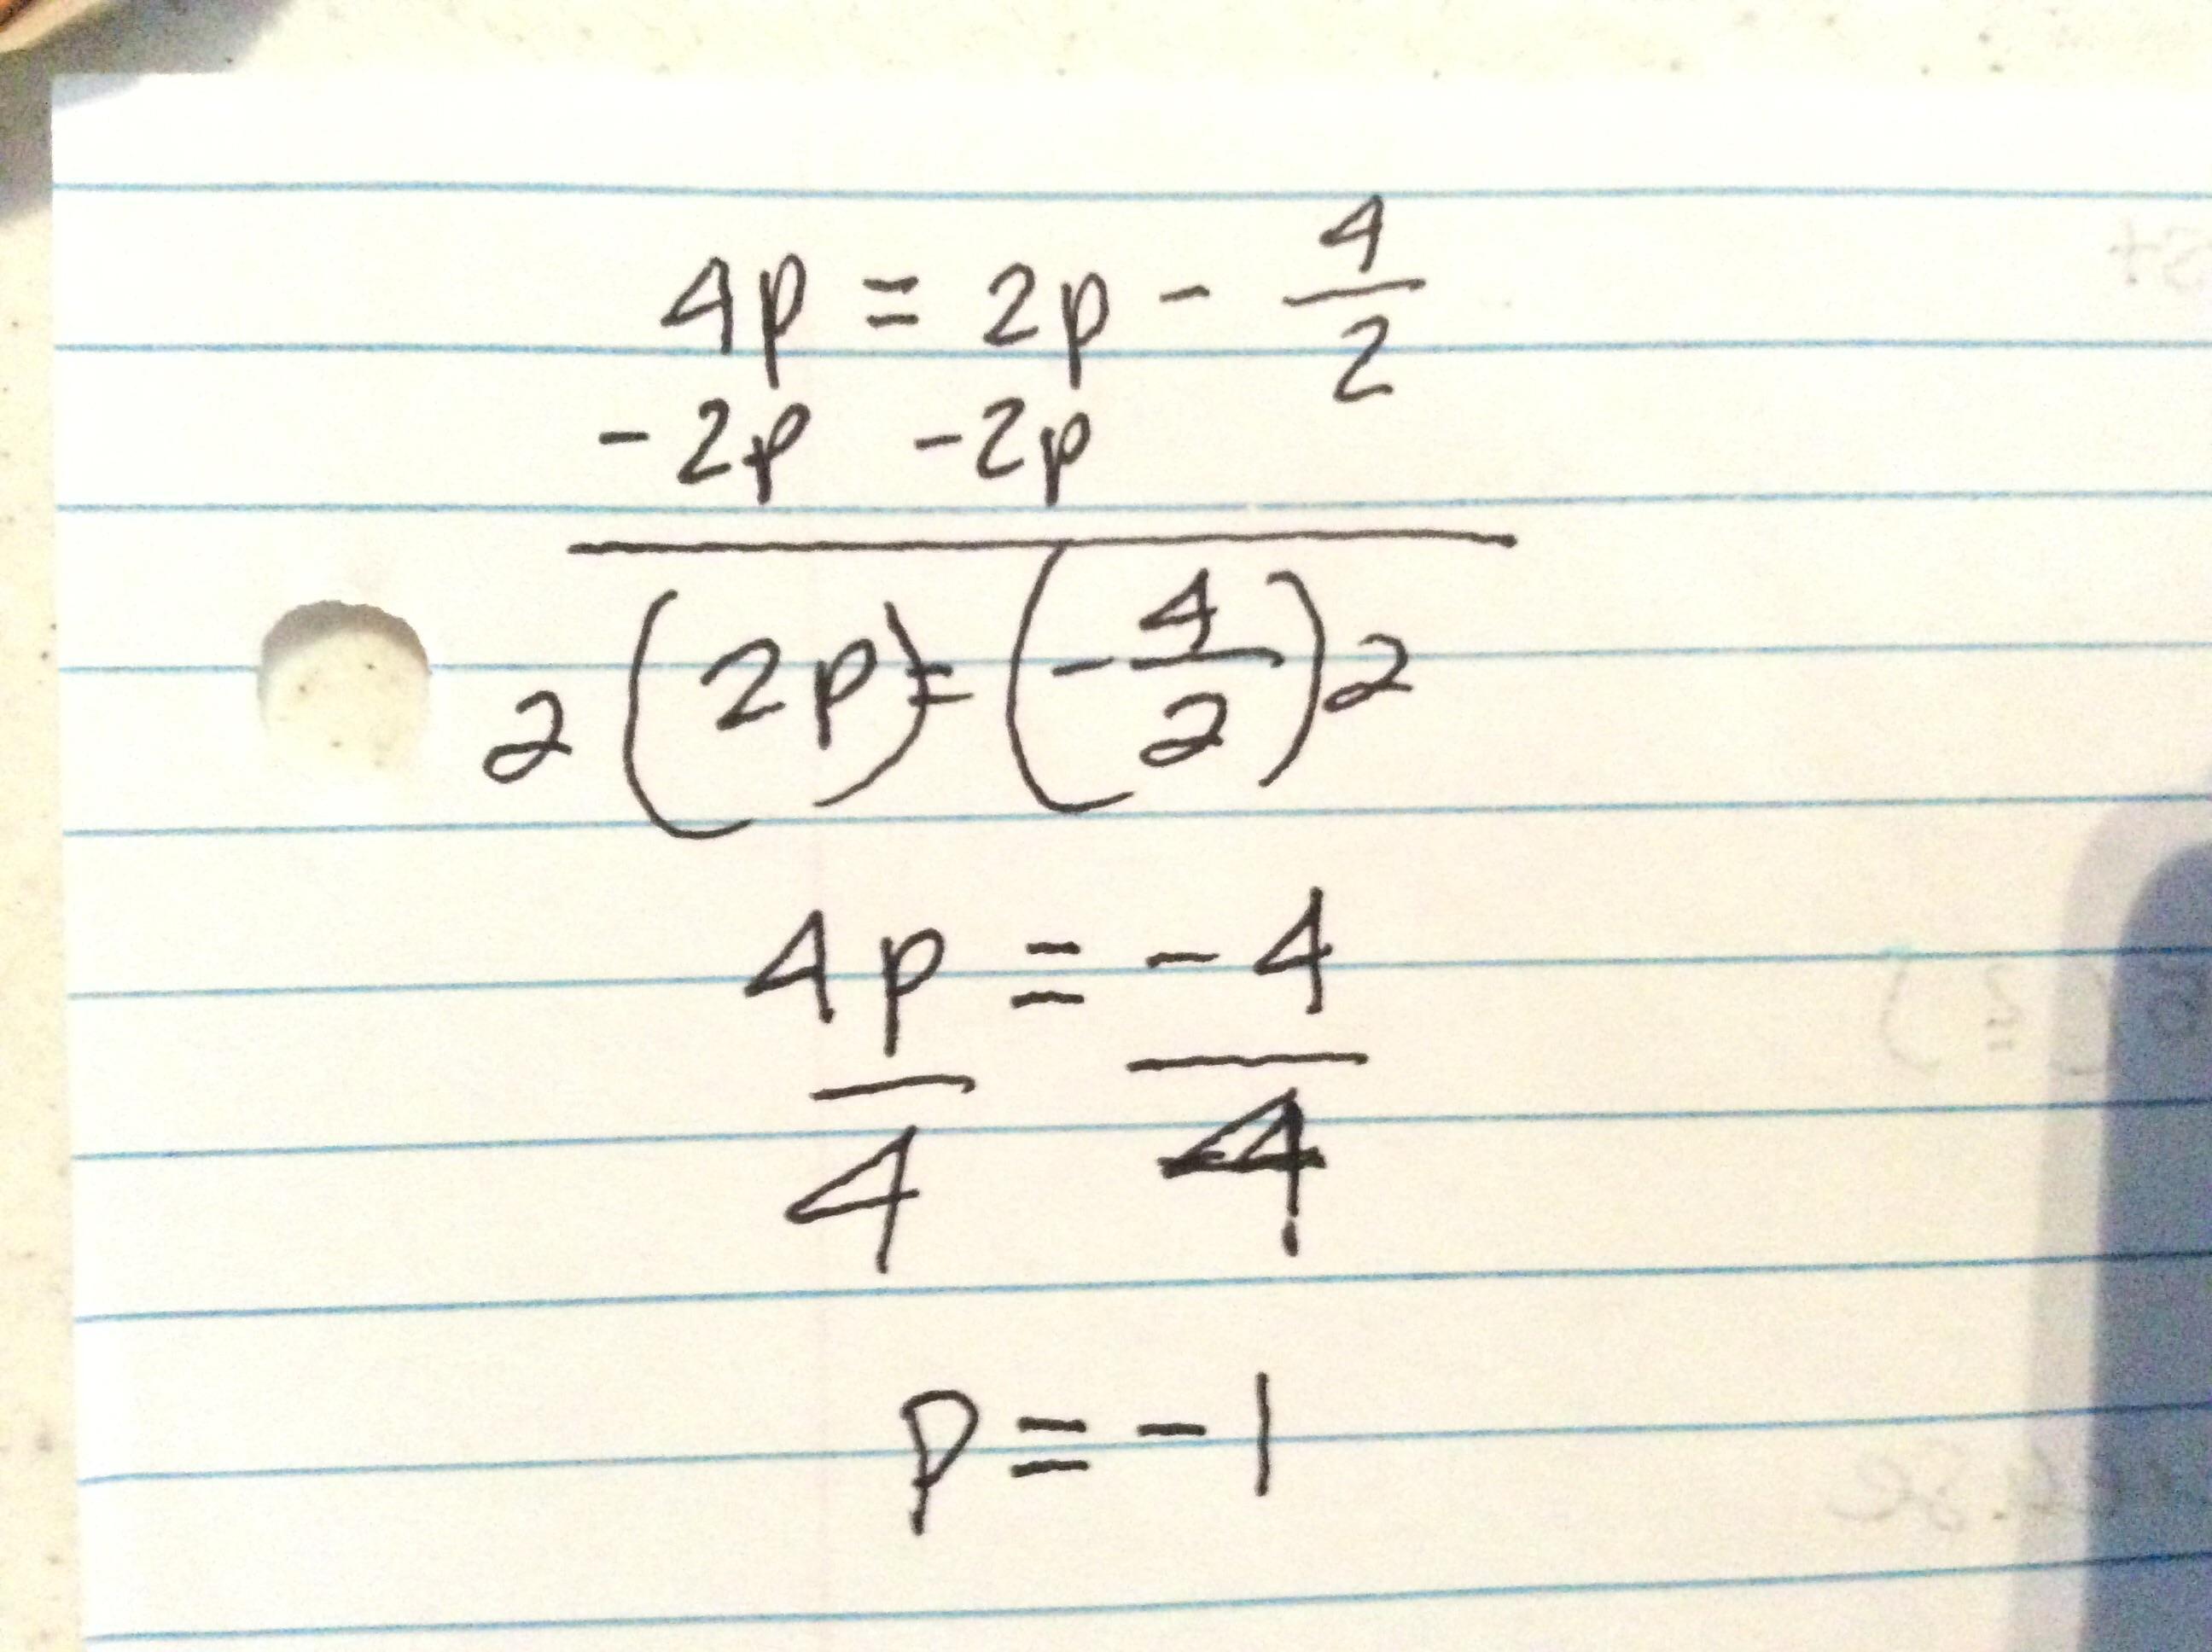 4p = 2p - 4/2
-2p -2p
2(2p) = (-4/2)2
4p = -4
4 4
p = -1